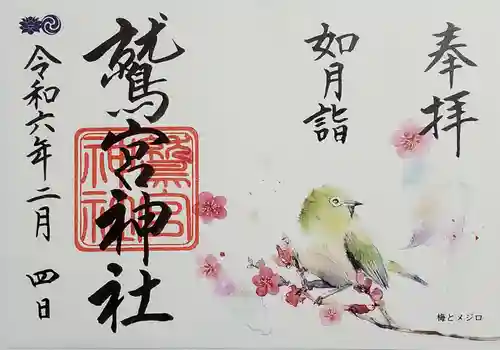 奉拝
如月詣
鷲宮神社
鷲宮神社
令和六年二月四日
梅とメジロ